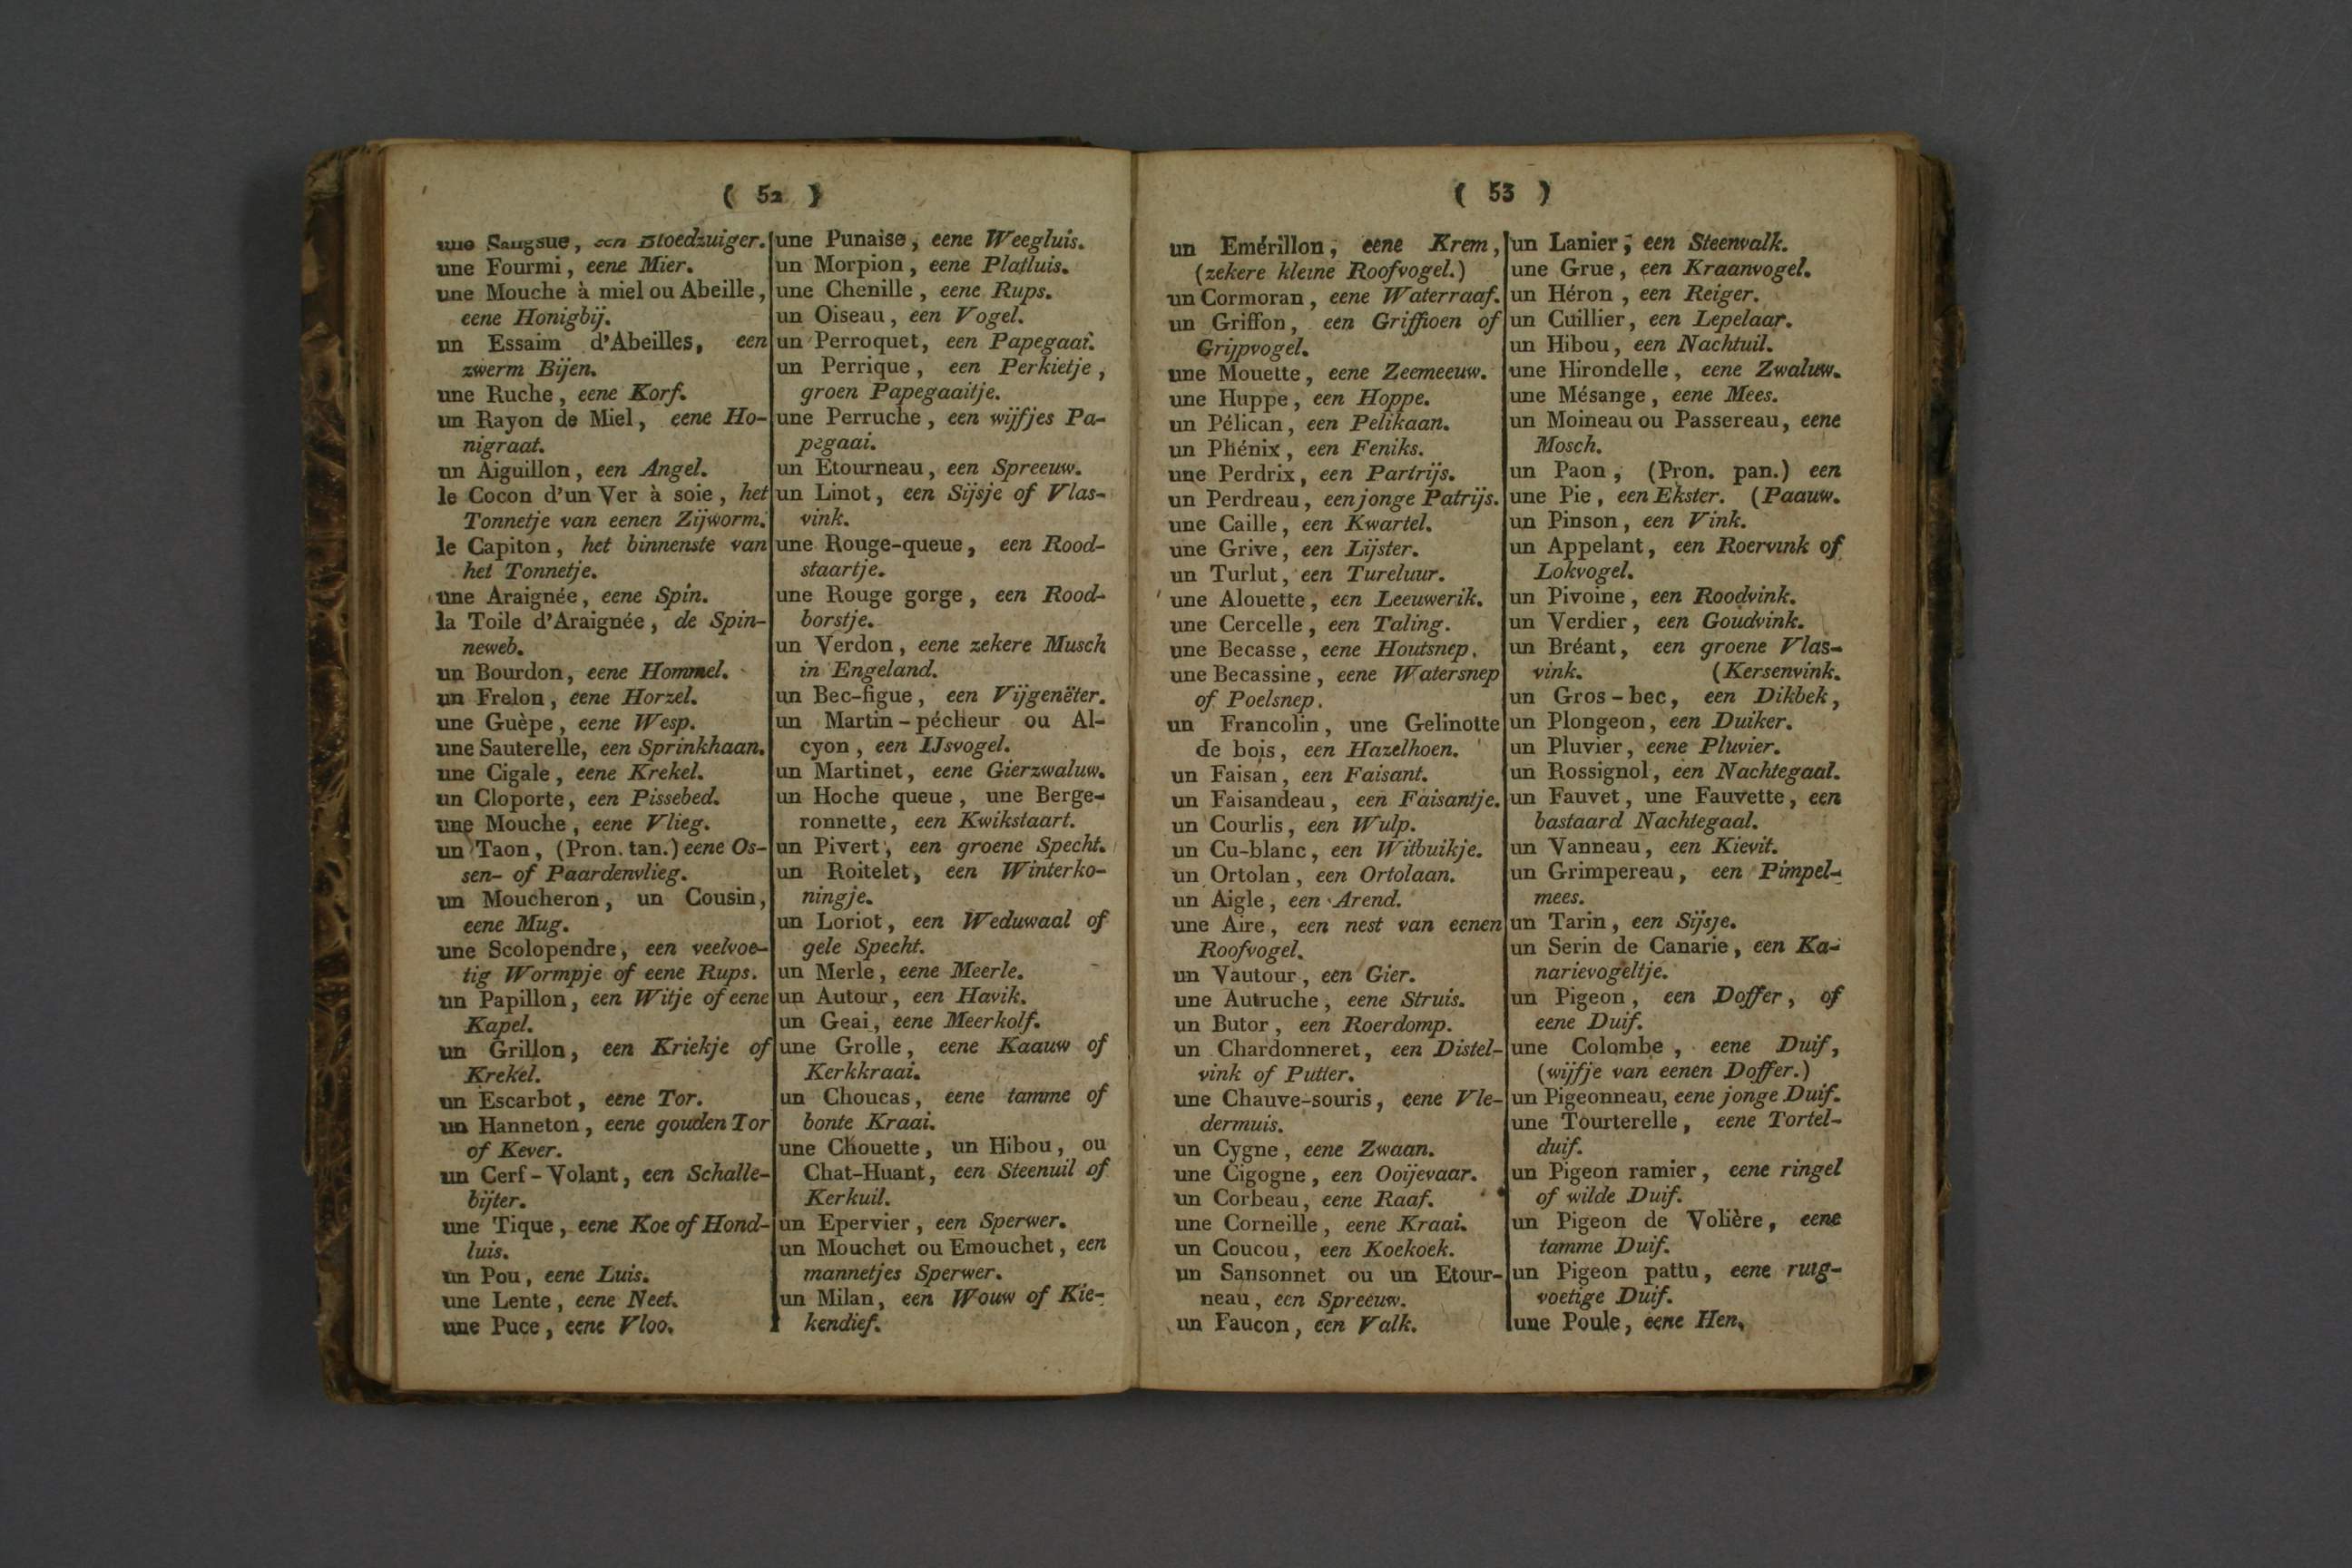 ( 52 )
une Sangsue, een Bloedzuiger.
une Fourmi, eene Mier.
une Mouche à miel ou Abeille,
eene Honigbij.
un Essaim d'Abeilles, een
zwerm Bijen.
une Ruche, eene Korf.
un Rayon de Miel, eene Ho-
nigraat.
un Aiguillon, een Angel.
le Cocon d'un Ver à soie, het
Tonnetje van eenen Zijworm.
le Capiton, het binnenste van
het Tonnetje.
une Araignée, eene Spin.
la Toile d'Araignée, de Spin-
neweb.
un Bourdon, eene Hommel.
un Frelon, eene Horzel.
une Guèpe, eene Wesp.
une Sauterelle, een Sprinkhaan.
une Cigale, eene Krekel.
un Cloporte, een Pissebed.
une Mouche, eene Vlieg.
un Taon, (Pron. tan.) eene Os-
sen- of Paardenvlieg.
un Moucheron, un Cousin,
eene Mug.
une Scolopendre, een veelvoe-
tig Wormpje of eene Rups.
un Papillon, een Witje of eene
Kapel.
un Grillon, een Kriekje of
Krekel.
un Escarbot, eene Tor.
un Hanneton, eene gouden Tor
of Kever.
un Cerf-Volant, een Schalle-
bijter.
une Tique, eene Koe of Hond-
luis.
un Pou, eene Luis.
une Lente, eene Neet.
une Puce, eene Vloo.
une Punaise, eene Weegluis.
un Morpion, eene Platluis.
une Chenille, eene Rups.
un Oiseau, een Vogel.
un Perroquet, een Papegaai.
un Perrique, een Perkietje,
groen Papegaaitje.
une Perruche, een wijfjes Pa-
pegaai.
un Etourneau, een Spreeuw.
un Linot, een Sijsje of Vlas-
vink.
une Rouge-queue, een Rood-
staartje.
une Rouge gorge, een Rood-
borstje.
un Verdon, eene zekere Musch
in Engeland.
un Bec-figue, een Vijgenëter.
un Martin-pécheur ou Al-
cyon, een IJsvogel.
un Martinet, eene Gierzwaluw.
un Hoche queue, une Berge-
ronnette, een Kwikstaart.
un Pivert, een groene Specht.
un Roitelet, een Winterko-
ningje.
un Loriot, een Weduwaal of
gele Specht.
un Merle, eene Meerle.
un Autour, een Havik.
un Geai, eene Meerkolf.
une Grolle, eene Kaauw of
Kerkkraai.
un Choucas, eene tamme of
bonte Kraai.
une Chouette, un Hibou, ou
Chat-Huant, een Steenuil of
Kerkuil.
un Epervier, een Sperwer.
un Mouchet ou Emouchet, een
mannetjes Sperwer.
un Milan, een Wouw of Kie-
kendief.
( 53 )
un Emérillon, eene Krem,
(zekere kleine Roofvogel.)
un Cormoran, eene Waterraaf.
un Griffon, een Griffioen of
Grijpvogel.
une Mouette, eene Zeemeeuw.
une Huppe, een Hoppe.
un Pélican, een Pelikaan.
un Phénix, een Feniks.
une Perdrix, een Partrijs.
un Perdreau, een jonge Patrijs.
une Caille, een Kwartel.
une Grive, een Lijster.
un Turlut, een Tureluur.
une Alouette, een Leeuwerik.
une Cercelle, een Taling.
une Becasse, eene Houtsnep.
une Becassine, eene Watersnep
of Poelsnep.
un Francolin, une Gelinotte
de bois, een Hazelhoen.
un Faisan, een Faisant.
un Faisandeau, een Faisantje.
un Courlis, een Wulp.
un Cu-blanc, een Witbuikje.
un Ortolan, een Ortolaan.
un Aigle, een Arend.
une Aire, een nest van eenen
Roofvogel.
un Vautour, een Gier.
une Autruche, eene Struis.
un Butor, een Roerdomp.
un Chardonneret, een Distel-
vink of Putter.
une Chauve-souris, eene Vle-
dermuis.
un Cygne, eene Zwaan.
une Cigogne, een Ooijevaar.
un Corbeau, eene Raaf.
une Corneille, eene Kraai.
un Coucou, een Koekoek.
un Sansonnet ou un Etour-
neau, een Spreeuw.
un Faucon, een Valk.
un Lanier, een Steenvalk.
une Grue, een Kraanvogel.
un Héron, een Reiger.
un Cuillier, een Lepelaar.
un Hibou, een Nachtuil.
une Hirondelle, eene Zwaluw.
une Mésange, eene Mees.
un Moineau ou Passereau, eene
Mosch.
un Paon, (Pron. pan.) een
une Pie, een Ekster. (Paauw.
un Pinson, een Vink.
un Appelant, een Roervink of
Lokvogel.
un Pivoine, een Roodvink.
un Verdier, een Goudvink.
un Bréant, een groene Vlas-
vink. (Kersenvink.
un Gros-bec, een Dikbek,
un Plongeon, een Duiker.
un Pluvier, eene Pluvier.
un Rossignol, een Nachtegaal.
un Fauvet, une Fauvette, een
bastaard Nachtegaal.
un Vanneau, een Kievit.
un Grimpereau, een Pimpel-
mees.
un Tarin, een Sijsje.
un Serin de Canarie, een Ka-
narievogeltje.
un Pigeon, een Doffer, of
eene Duif.
une Colombe, eene Duif,
(wijfje van eenen Doffer.)
un Pigeonneau, eene jonge Duif.
une Tourterelle, eene Tortel-
duif.
un Pigeon ramier, eene ringel
of wilde Duif.
un Pigeon de Volière, eene
tamme Duif.
un Pigeon pattu, eene ruig-
voetige Duif.
une Poule, eene Hen,